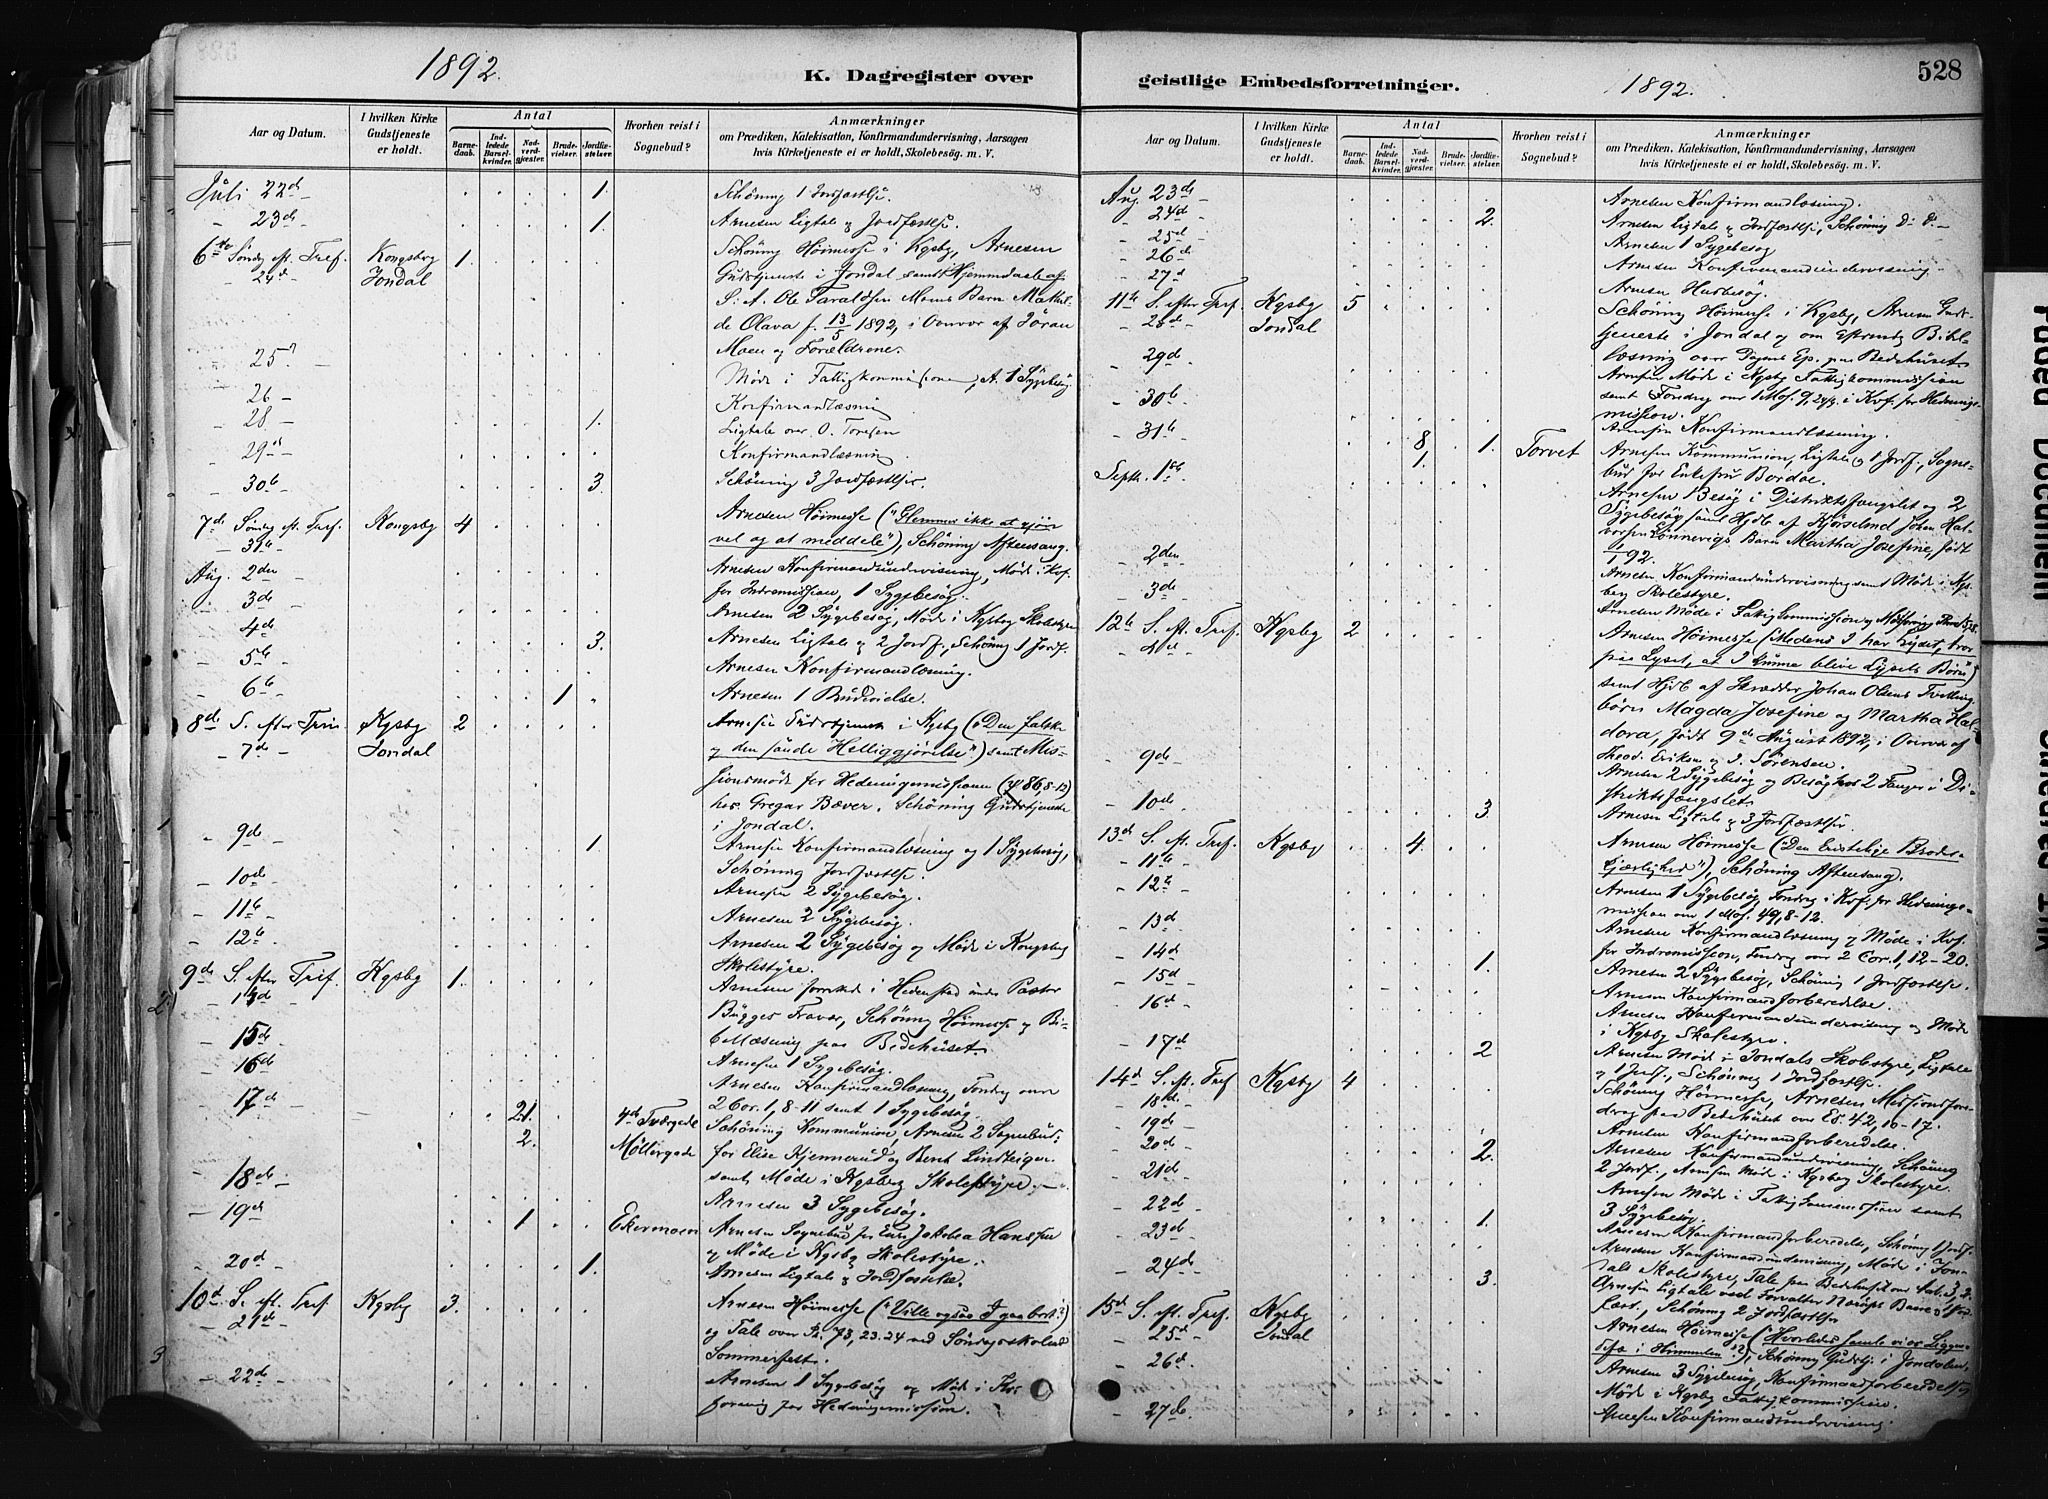 1892.
K. Dagregister over
Aar og Datum.
I hvilken Kirke Gudstjeneste er holdt.
Antal
Barnedaab.
Indledede Barselkvinder.
Nadverdgjester.
Brudevielser.
Jordfæstelser.
Hvorhen reist i Sognebud?
Anmærkninger
om Prædiken, Katekisation, Konfirmandundervisning, Aarsagen
hvis Kirketjeneste ei er holdt, Skolebesøg. m. V.
Juli 22d 1. Schöning 1 Jordfæstelse.
- 23de 1. Arnesen Ligtale & Jordfæstelse
6te Søndg eft. Tref. Kongsberg 1. Schöning Høimesse i Kgsbg, Arnesen
24d Jondal Gudstjeneste i Jondal samt Hjemmedaab af
S. A. Ole Taraldsen Moens Barn Mathil-
de Olava f. 13/5 1892, i Overvær af Jöran
Moen og Forældrene.
- 25 Møde i Fattigkommissionen, A. 1 Sygebesøg
26 - Konfirmandlæsning
- 28 1. Ligtale over O. Toresen
- 29d Konfirmandlæsning
- 30te 3. Schöning 3 Jordfæstelser.
7de Søndg eft. Tref. Kongsbg 4 Arnesen Høimesse ("Glemmer ikke at gjøre
- 31te vel og at meddele"), Schöning Aftensang.
Aug. 2den Arnesen Konfirmandundervisning, Møde i Kvf.
- 3de for Indremission, 1 Sygebesøg.
- 4de Arnesen 2 Sygebesøg, Møde i Kgsbg Skolestyre
- 5te 3. Arnesen Ligtale & 2 Jordf., Schöning 1 Jordf.
Arnesen Konfirmandlæsning.
- 6te 1 Arnesen 1 Brudevielse.
8de S. efter Trin. Kgsbg 2 Arnesen Gudstjeneste i Kgsbg ("Den falske
- 7de Jondal og den sande Helliggjørelse") samt Mis-
sionsmøde for Hedningemissionen (ψ 86,8-13)
hos Gregar Bæver. Schöning Gudstjeneste
i Jondal.
- 9de 1. Arnesen Konfirmandlæsning og 1 Sygebesøg,
Schöning Jordfæstelse.
- 10de Arnesen 2 Sygebesøg.
- 11te Arnesen 2 Sygebesøg.
- 12te Arnesen 2 Sygebesøg og Møde i Kongsbg
Skolestyre.
9de S. efter Tref. Kgsbg 1. Arnesen i Hedenstad under Pastor
- 14d Bugges Fravær, Schöning Høimesse og Bi-
- 15de bellæsning paa Bedehuset.
- 16de Arnesen 1 Sygebesøg.
Arnesen Konfirmandlæsning, Foredrag over
- 17de 2 Cor. 1, 8-11 samt 1 Sygebesøg.
21. 4de Tværgade Schöning Kommunion, Arnesen 2 Sognebud,
2. Möllergade for Elise Kjennerud og Bent Lindteigen
- 18de samt Møde i Kgsberg Skolestyre.
Arnesen 3 Sygebesøg.
- 19de 1 Ekermoen Arnesen Sognebud for Enke Jakobea Hanssen
& Møde i Kgsbg Skolestyre.
- 20d 1. Arnesen Ligtale & Jordfæstelse.
10d S. eft. Tref Kgsbg 3. Arnesen Høimesse ("Ville ogsaa I gaa bort?")
- 21d og Tale over Ps. 73, 23.24 ved Søndagsskolens
Sommerfest.
- 22de Arnesen 1 Sygebesøg og Møde i Kvf.
forening for Hedningemission.
geistlige Embedsforretninger.
1892.
528
Aar og Datum.
I hvilken Kirke Gudstjeneste er holdt.
Antal
Barnedaab.
Indledede Barselkvinder.
Nadverdgjester.
Brudevielser.
Jordfæstelser.
Hvorhen reist i Sognebud?
Anmærkninger
om Prædiken, Katekisation, Konfirmandundervisning, Aarsagen
hvis Kirketjeneste ei er holdt, Skolebesøg. m. V.
Aug. 23de Arnesen Konfirmandlæsning.
- 24d 2. Arnesen Ligtale & Jordfæstelse, Schöning D. D.
- 25d Arnesen 1 Sygebesøg
- 26de Arnesen Konfirmandundervisning.
- 27d Arnesen Husbesøg.
11te S. efter Tref. Kgsbg 5 Schöning Høimesse i Kgsbg, Arnesen Guds-
- 28de Jondal tjeneste i Jondal og om Eftermdg Bibel-
læsning over Dagens Ep. paa Bedehuset
- 29d Arnesen Møde i Kgsbg Fattigkommission
- 30te samt Foredrag over 1 Mos. 9, i Kvf. for Hednings-
mission.
- 31te Arnesen Konfirmandlæsning.
8 1. Torvet Arnesen Kommunion, Ligtale & 1 Jordf., Sogne-
Septr. 1ste 1. bud for Enkefru Bordoe.
Arnesen 1 Besøg i Distriktsfængslet og 2
Sygebesøg samt Hjdb af Kjörselmd Johan Hal-
vorsen Lonnevigs Barn Martha Josefine, født
- 2den 92.
Arnesen Konfirmandundervisning samt Møde i Kgs-
- 3de bg Skolestyre.
Arnesen Møde i Fattigkommission
12te S. eft. Tref. Kgsbg 2 Arnesen Høimesse (Medens I har Lyset, tror
- 4d paa Lyset, at I kunne blive Lysets Børn)
samt Hjdb af Skrædder Johan Olsens Tvilling-
børn Magda Josefine og Martha Hal-
dora, født 9de August 1892, i Overvær af
Theod. Eriksen og J. Sörensen.
- 9de Arnesen 2 Sygebesøg og Besøg hos 2 Fanger i Di-
striktsfængslet.
- 10de 3. Arnesen Ligtale & 3 Jordfæstelser.
13de S. eft. Tref. Kgsbg 4. Arnesen Høimesse ("Den kristelige Broder-
- 11te kjærlighed"), Schöning Aftensang.
- 12te Arnesen 1 Sygebesøg, Foredrag i Kvf. for Hednings-
mission over 1 Mos. 49, 8-12.
- 13d Arnesen Konfirmandlæsning og Møde i Kvf.
- 14d for Indremission, Foredrag over 2 Cor. 1, 12-20.
1. Arnesen 2 Sygebesøg, Schöning 1 Jordfæstelse.
- 15d Arnesen Konfirmandforberedelse.
- 16d Arnesen Konfirmandundervisning og Møde
i Kgsbg Skolestyre.
- 17d 2 Arnesen Møde i Jondals Skolestyre, Ligtale
& 1 Jordf., Schöning 1 Jordfæstelse.
14d S. eft. Tref Kgsbg 4 Schöning Høimesse, Arnesen Missionsfore-
- 18de drag paa Bedehuset over Es. 42, 10-17.
- 19de Arnesen Konfirmandforberedelse.
- 20de 2. Arnesen Konfirmandundervisning, Schöning
- 21de 2 Jordf., Arnesen Møde i Kgsberg Skolestyre.
- 22de Arnesen Møde i Fattigkommission samt
3 Sygebesøg.
- 23de 1. Arnesen Konfirmandforberedelse, Schöning 1 Jordf.
Arnesen Konfirmandundervisning, Møde i Jon-
- 24de dals Skolestyre, Tale paa Bedehuset
3. Arnesen Ligtale ved Forvalter Barn & 1 Jord-
fæst., Schöning 2 Jordfæstelser
15d S. eft. Tref. Kgsbg Arnesen Høimesse ("Hvorledes samle vi os Liggen-
- 25de Jondal defæ i Himmelen"?), Schöning Gudstj. i Jondalen.
- 26d. Arnesen 3 Sygebesøg, Konfirmandforberedelse &
Møde i Kgsbg Fattigkommission.
- 27de. Arnesen Konfirmandundervisning.
Faded Document